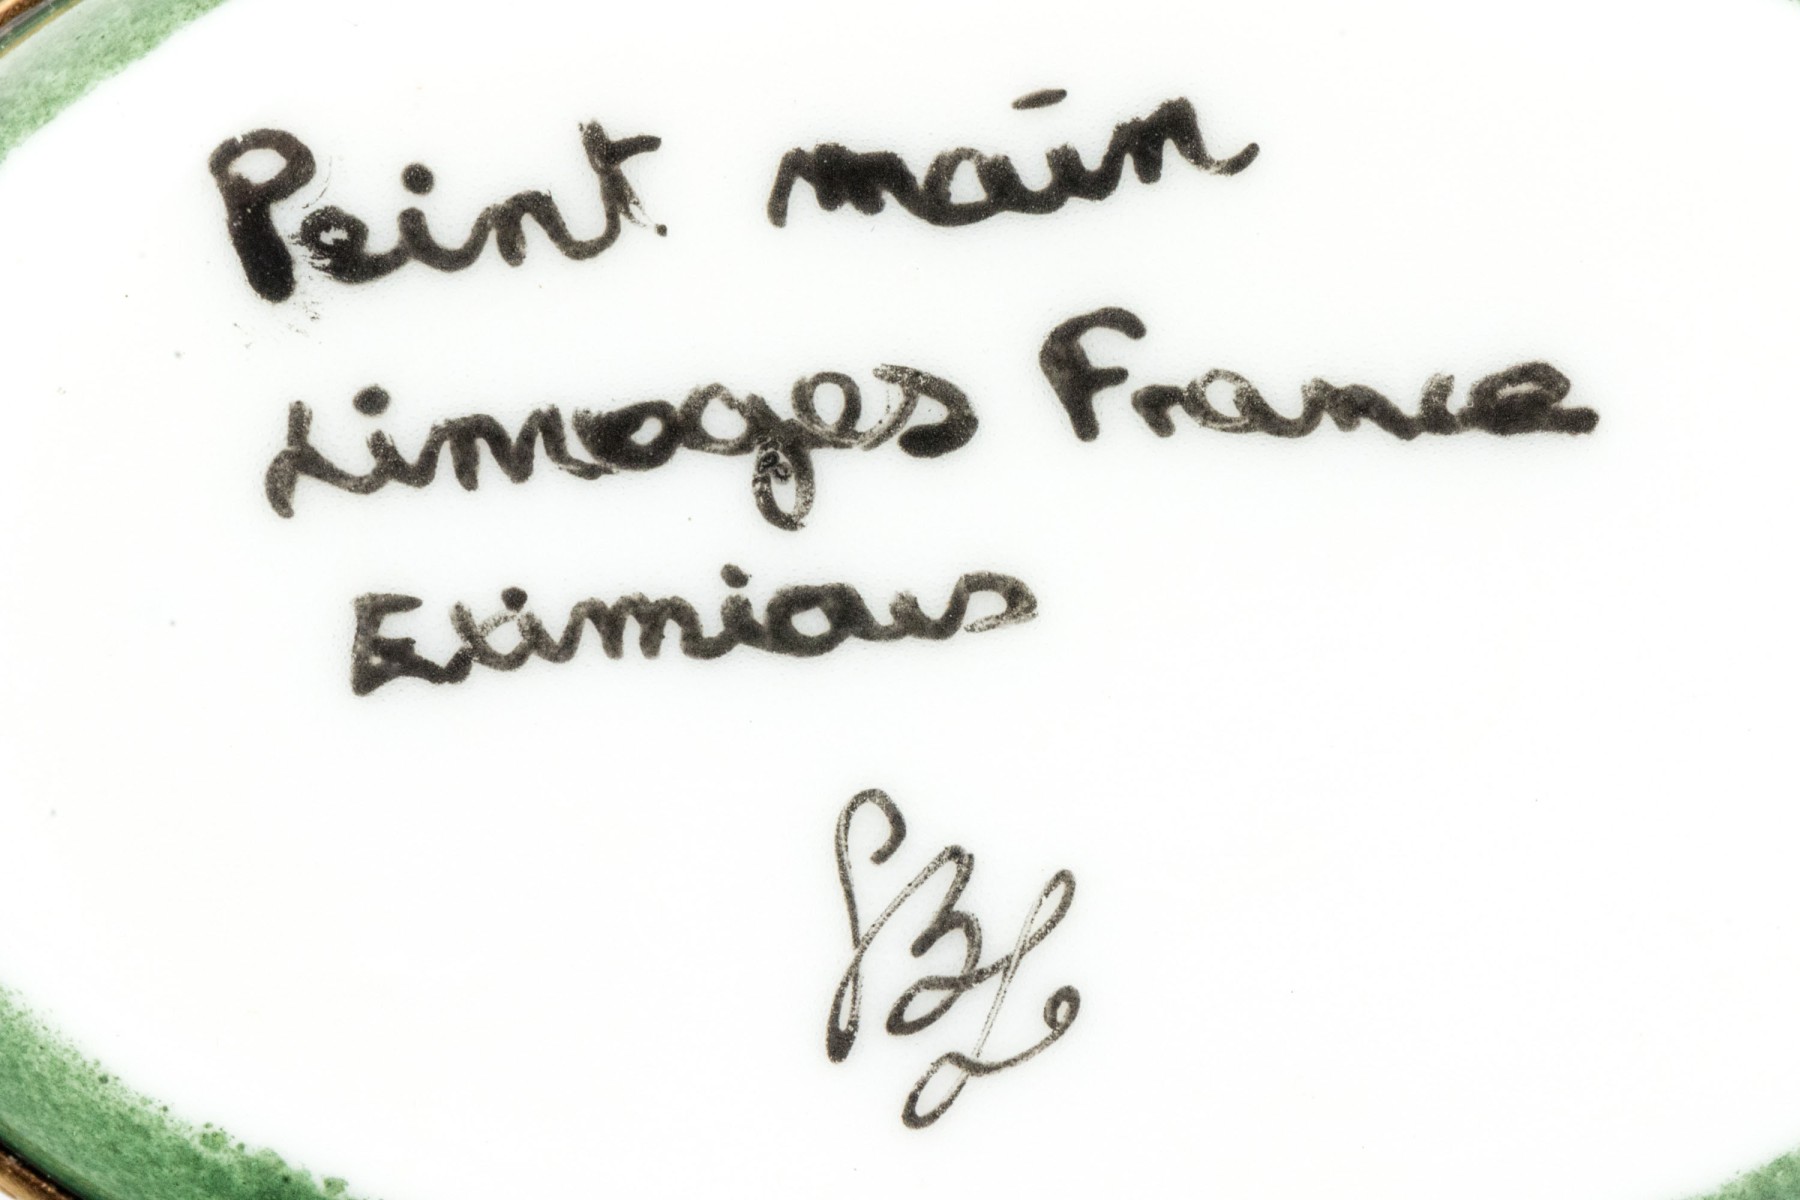 Peint main
Limoges France
Eximious
BL